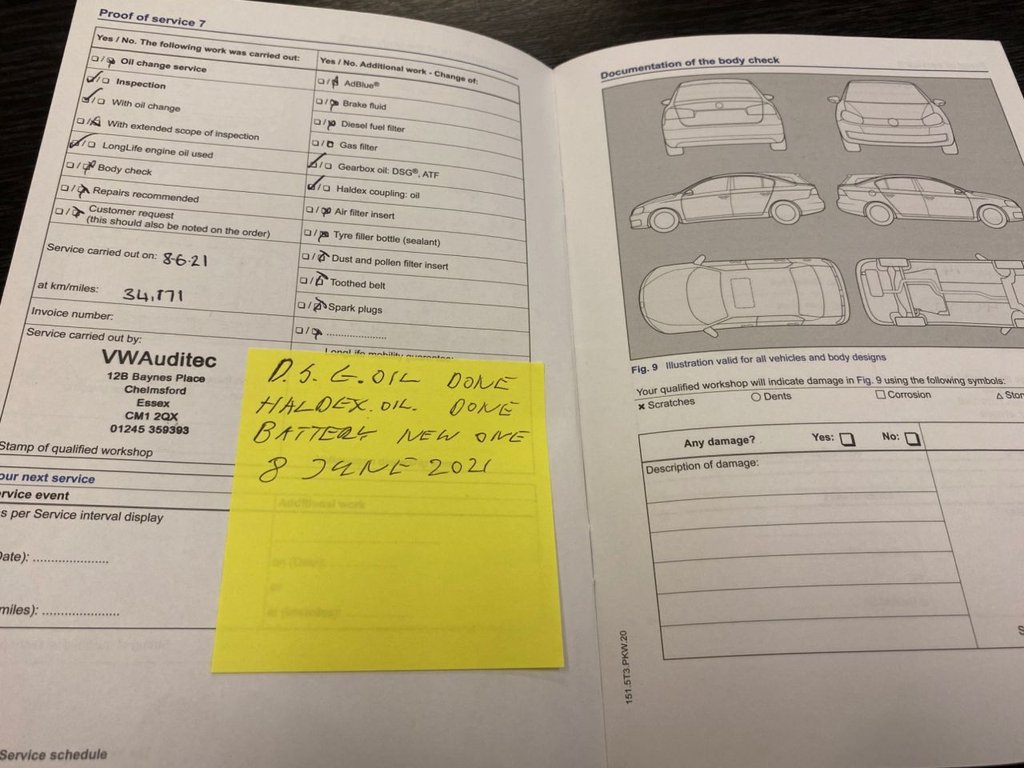 Proof of service 7
Yes / No. The following work was carried out:
Oil change service
Inspection
With oil change
With extended scope of inspection
LongLife engine oil used
Body check
Repairs recommended
Customer request
(this should also be noted on the order)
Service carried out on: 8-6-21
at km/miles: 34,171
Invoice number:
Service carried out by:
VWAuditec
12B Baynes Place
Chelmsford
Essex
CM1 2QX
01245 359393
Stamp of qualified workshop
our next service
ervice event
s per Service interval display
Date): ......................
miles): ......................
Service schedule
Yes / No. Additional work - Change of:
AdBlue®
Brake fluid
Diesel fuel filter
Gas filter
Gearbox oil: DSG®, ATF
Haldex coupling: oil
Air filter insert
Tyre filler bottle (sealant)
Dust and pollen filter insert
Toothed belt
Spark plugs
....................
LongLife mobility guarantee:
D.S.G. OIL DONE
HALDEX. OIL. DONE
BATTERY NEW ONE
8 JUNE 2021
Additional work
Documentation of the body check
Fig. 9 Illustration valid for all vehicles and body designs
Your qualified workshop will indicate damage in Fig. 9 using the following symbols:
× Scratches
○ Dents
□ Corrosion
△ Ston
Any damage? Yes: □ No: □
Description of damage:
151.5T3.PKW.20